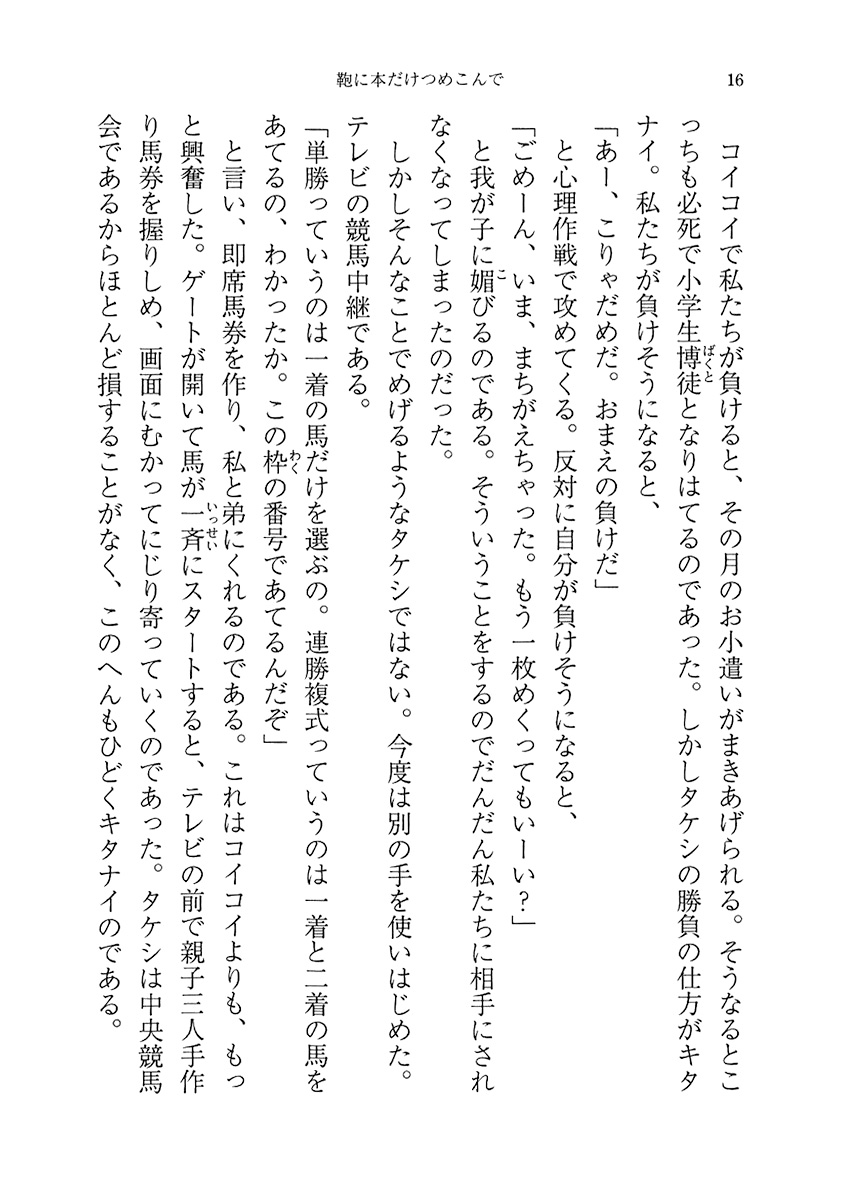 鞄に本だけつめこんで
16
コイコイで私たちが負けると、その月のお小遣いがまきあげられる。そうなるとこ
っちも必死で小学生博徒となりはてるのであった。しかしタケシの勝負の仕方がキタ
ナイ。私たちが負けそうになると、
「あー、こりゃだめだ。おまえの負けだ」
と心理作戦で攻めてくる。反対に自分が負けそうになると、
「ごめーん、いま、まちがえちゃった。もう一枚めくってもいーい？」
と我が子に媚びるのである。そういうことをするのでだんだん私たちに相手にされ
なくなってしまったのだった。
しかしそんなことでめげるようなタケシではない。今度は別の手を使いはじめた。
テレビの競馬中継である。
「単勝っていうのは一着の馬だけを選ぶの。連勝複式っていうのは一着と二着の馬を
あてるの、わかったか。この枠の番号であてるんだぞ」
と言い、即席馬券を作り、私と弟にくれるのである。これはコイコイよりも、もっ
と興奮した。ゲートが開いて馬が一斉にスタートすると、テレビの前で親子三人手作
り馬券を握りしめ、画面にむかってにじり寄っていくのであった。タケシは中央競馬
会であるからほとんど損することがなく、このへんもひどくキタナイのである。